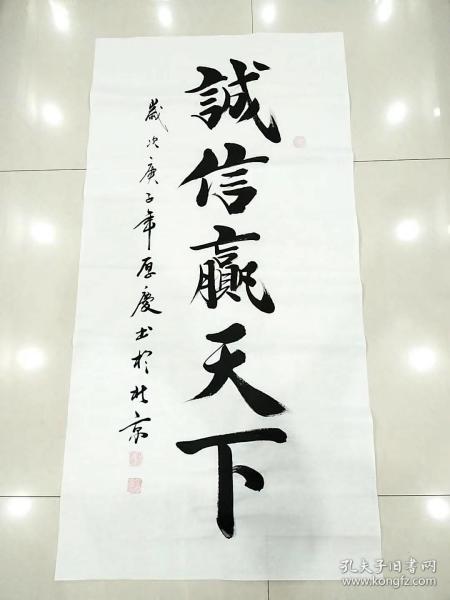 誠信贏天下
歲次庚子年厚慶书於北京
孔夫子旧书网
www.kongfz.com